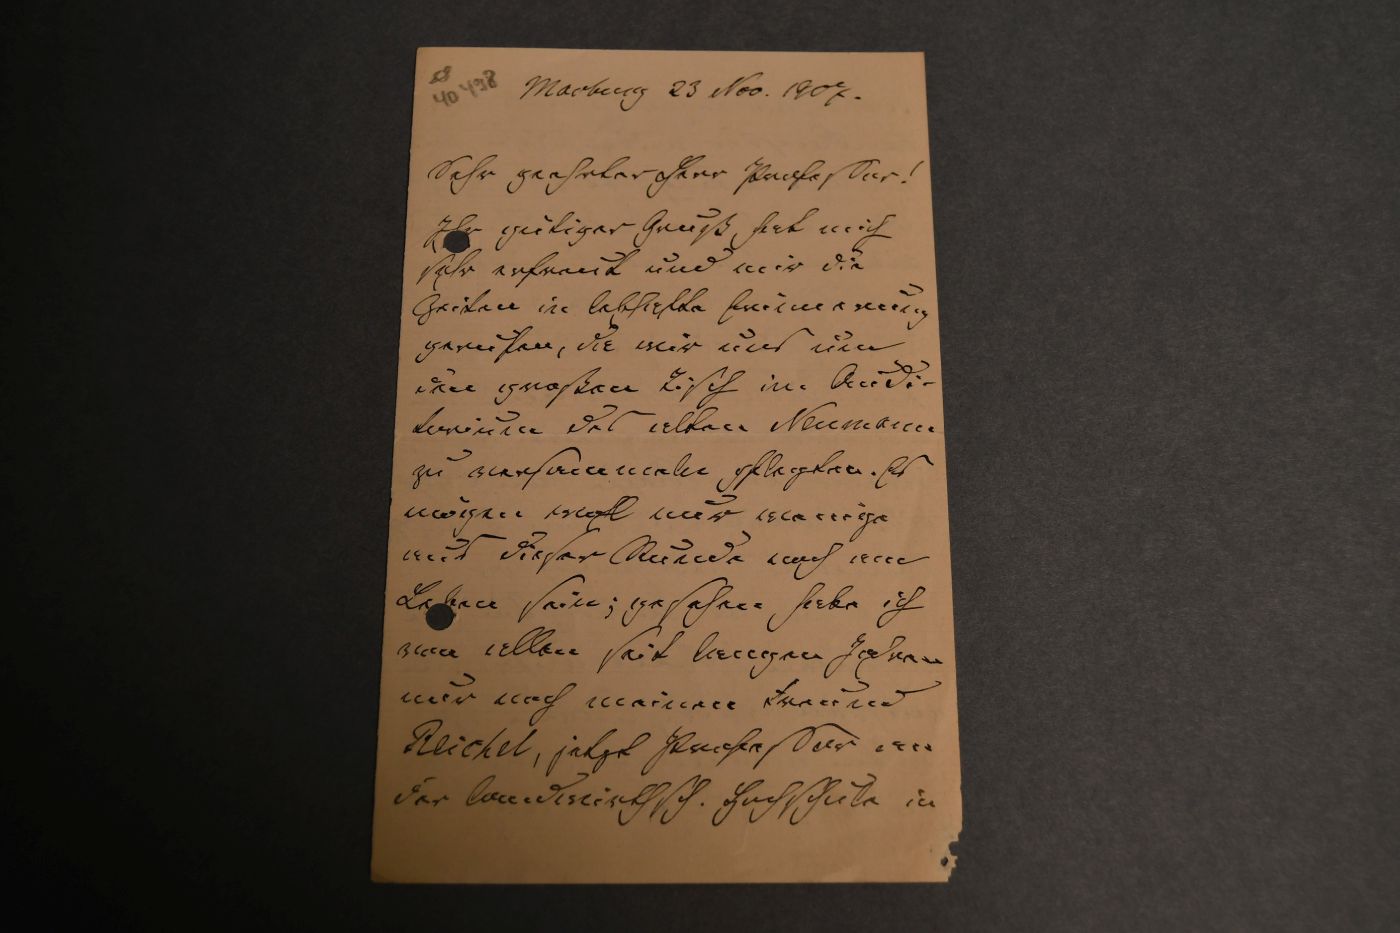 40 498
Marburg 23 Nov. 1907.
Sehr geehrter Herr Professor!
Ihr gütiger Gruß hat mich
sehr erfreut und mir die
Zeiten in lebhafte Erinnerung
gerufen, die wir uns um
den großen Tisch im Audi-
torium des alten Neumann
zu versammeln pflegten. Es
mögen wohl nur wenige
aus dieser Runde noch am
Leben sein; gesehen habe ich
von allen seit langen Jahren
nur noch meinen Freund
Reichel, jetzt Professor an
der landwirthsch. Hochschule in